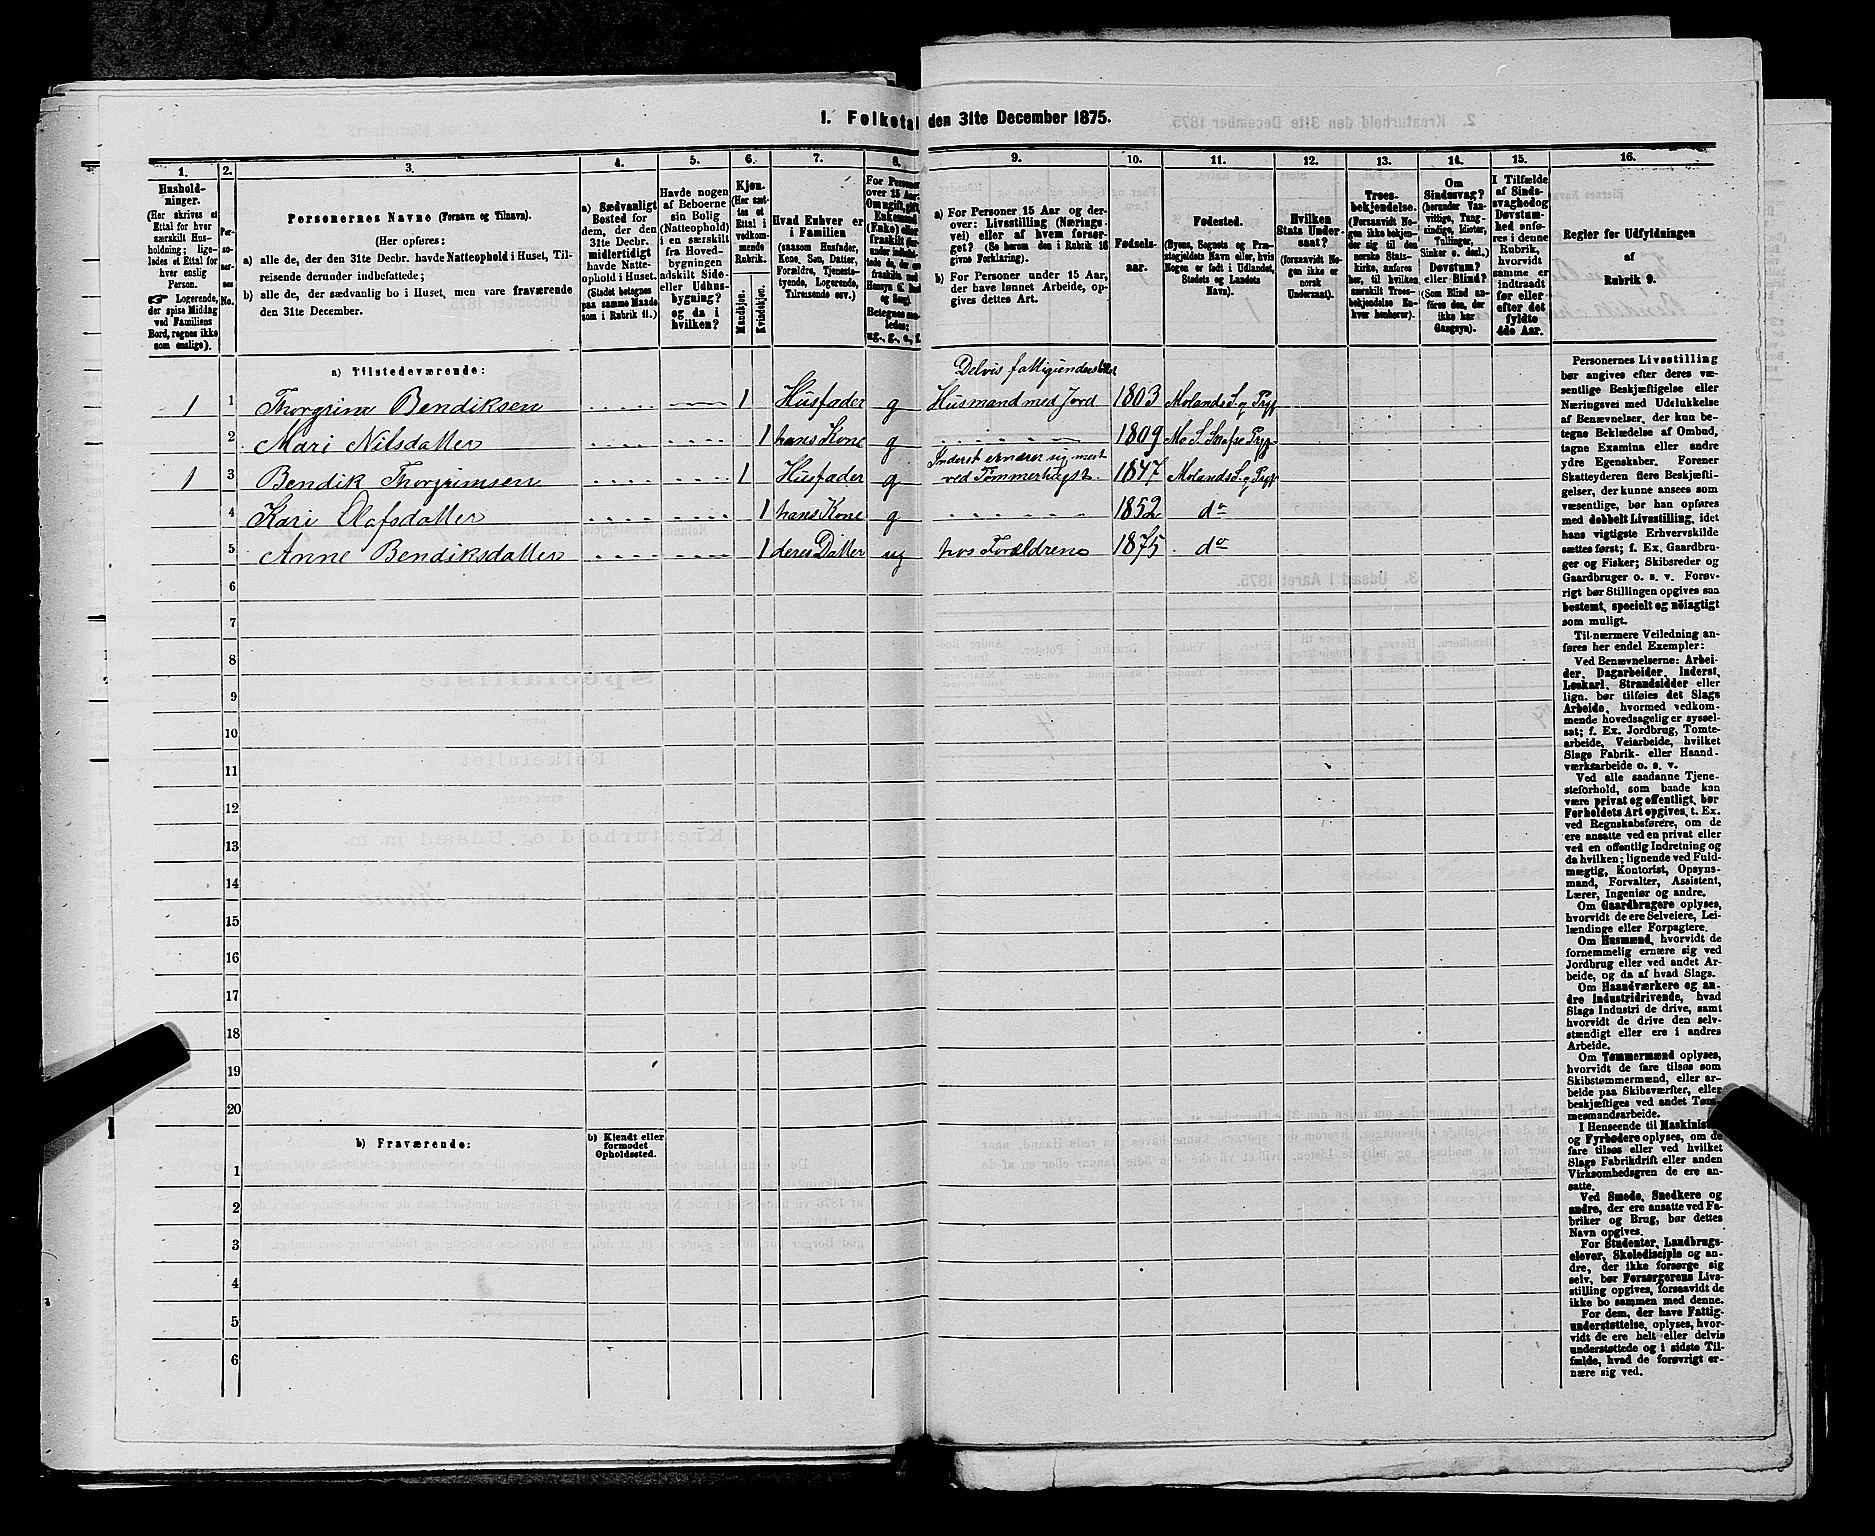 1. Folketal den 31te December 1875.
1.
2.
3.
4.
5.
6.
7.
8.
9.
10.
11.
12.
13.
14.
15.
16.
Hushold-
ninger.
(Her skrives et
Ettal for hver
særskilt Hus-
holdning; lige-
ledes et Ettal for
hver enslig
Person.
☞ Logerende,
der spise Middag
ved Familiens
Bord, regnes ikke
som enslige).
Per-
so-
ner-
nes
No.
Personernes Navne (Fornavn og Tilnavn).
(Her opføres:
a) alle de, der den 31te Decbr. havde Natteophold i Huset, Til-
reisende derunder indbefattede;
b) alle de, der sædvanlig bo i Huset, men vare fraværende
den 31te December.
a) Sædvanligt
Bosted for
dem, der den
31te Decbr.
midlertidigt
havde Natte-
ophold i Huset.
(Stedet betegnes
paa samme Maade
som i Rubrik 11.)
Havde nogen
af Beboerne
sin Bolig
(Natteophold)
i en særskilt
fra Hoved-
bygningen
adskilt Side-
eller Udhus-
bygning?
og da i
hvilken?
Kjøn.
(Her sæt-
tes et
Ettal i
vedkom-
mende
Rubrik.
Mandkjøn.
Kvindekjøn.
Hvad Enhver er
i Familien
(saasom Husfader,
Kone, Søn, Datter,
Forældre, Tjeneste-
tyende, Logerende,
Tilreisende osv.)
For Personer
over 15 Aar:
Om ugift, gift,
Enkemand
(Enke) eller
fraskilt
Betegnes saa-
ledes:
ug., g., e., f.
a) For Personer 15 Aar og der-
over: Livsstilling (Nærings-
vei) eller af hvem forsør-
get? (Se herom den i Rubrik 16
givne Forklaring).
b) For Personer under 15 Aar,
der have lønnet Arbeide, op-
gives dettes Art.
Fødsels-
aar.
Fødested.
(Byens, Sognets og Præ-
stegjeldets Navn eller, hvis
Nogen er født i Udlandet,
Stedets og Landets
Navn).
Hvilken
Stats Under-
saat?
(forsaavidt No-
gen ikke er
norsk
Undersaat).
Troes-
bekjendelse.
(Forsaavidt No-
gen ikke bekjen-
der sig til den
norske Stats-
kirke, anføres
her, til hvilken
særskilt Troes-
bekjendelse En-
hver henhører).
Om
Sindssvag?
(herunder Van-
vittige, Tung-
sindige, Idioter,
Tullinger,
Sinker o. desl.)
Døvstum?
eller Blind?
(Som Blind an-
føres den, der
ikke har
Gangsyn).
I Tilfælde
af Sinds-
svaghed og
Døvstum-
hed anfø-
res i denne
Rubrik,
hvorvidt
samme er
indtraadt
før eller
efter det
fyldte
4de Aar.
Regler for Udfyldningen
af
Rubrik 9.
a) Tilstedeværende:
Delvis fattigunderstøttet
1 1 Thorgrim Bendiksen 1 Husfader g Husmand med Jord 1803 Molands S. og Prgj
2 Mari Nilsdatter 1 hans Kone g 1809 Mo S. Prgj
Inderst ernærer sig mest
1 3 Bendik Thorgrimsen 1 Husfader g ved Tømmerhugst. 1847 Molands S. og Prgj
4 Kari Olafsdatter 1 hans Kone g 1852 do
5 Anne Bendiksdatter 1 deres Datter ug hos Forældrene 1875 do
6
7
8
9
10
11
12
13
14
15
16
17
18
19
20
b) Fraværende:
b) Kjendt eller
formodet
Opholdssted.
1
2
3
4
5
6
Personernes Livsstilling
bør angives efter deres væ-
sentlige Beskjæftigelse eller
Næringsvei med Udelukkelse
af Benævnelser, der kun be-
tegne Beklædelse af Ombud,
tagne Examina eller andre
ydre Egenskaber. Forener
Skatteyderen flere Beskjæfti-
gelser, der kunne ansees som
væsentlige, bør han opføres
med dobbelt Livsstilling, idet
hans vigtigste Erhvervskilde
sættes først; f. Ex. Gaardbru-
ger og Fisker; Skibsreder og
Gaardbruger o. s. v. Forøv-
rigt bør Stillingen opgives saa
bestemt, specielt og nöiagtigt
som muligt.
Til nærmere Veiledning an-
føres her endel Exempler:
Ved Benævnelserne: Arbei-
der, Dagarbeider, Inderst,
Løskarl, Strandsidder eller
lign. bør tilføies det Slags
Arbeide, hvormed vedkom-
mende hovedsagelig er syssel-
sat; f. Ex. Jordbrug, Tomte-
arbeide, Veiarbeide, hvilket
Slags Fabrik- eller Haand-
værksarbeide o. s. v.
Ved alle saadanne Tjene-
steforhold, som baade kan
være privat og offentligt, bør
Forholdets Art opgives, t. Ex.
ved Regnskabsførere, om de
ere ansatte ved en privat eller
ved en offentlig Indretning og
da hvilken; lignende ved Fuld-
mægtig, Kontorist, Opsyns-
mand, Forvalter, Assistent,
Lærer, Ingeniør og andre.
Om Gaardbrugere oplyses,
hvorvidt de ere Selveiere, Lei-
lændinge eller Forpagtere.
Om Husmænd, hvorvidt de
fornemmelig ernære sig ved
Jordbrug eller ved andet Ar-
beide, og da af hvad Slags.
Om Haandværkere og an-
dre Industridrivende, hvad
Slags Industri de drive, samt
hvorvidt de drive den selv-
stændigt eller ere i andres
Arbeide.
Om Tømmermænd oplyses,
hvorvidt de fare tilsøs som
Skibstømmermænd, eller ar-
beide paa Skibsværfter, eller
beskjæftiges ved andet Tøm-
mesmandsarbeide.
I Henseende til Maskinister
og Fyrbødere oplyses, om de
fare tilsøs eller ved hvilket
Slags Fabrikdrift eller anden
Virksomhedsgren de ere an-
satte.
Ved Smede, Snedkere og
andre, der ere ansatte ved Fa-
briker og Brug, bør dettes
Navn opgives.
For Studenter, Landbrugs-
elever, Skoledisciple og an-
dre, der ikke forsørge sig
selv, bør Forsørgerens Livs-
stilling opgives, forsaavidt de
ikke bo sammen med denne.
For dem, der have Fattig-
understøttelse, oplyses, hvor-
vidt de ere helt eller delvis
understøttede og i sidste Til-
fælde, hvad de forøvrigt er-
nære sig ved.